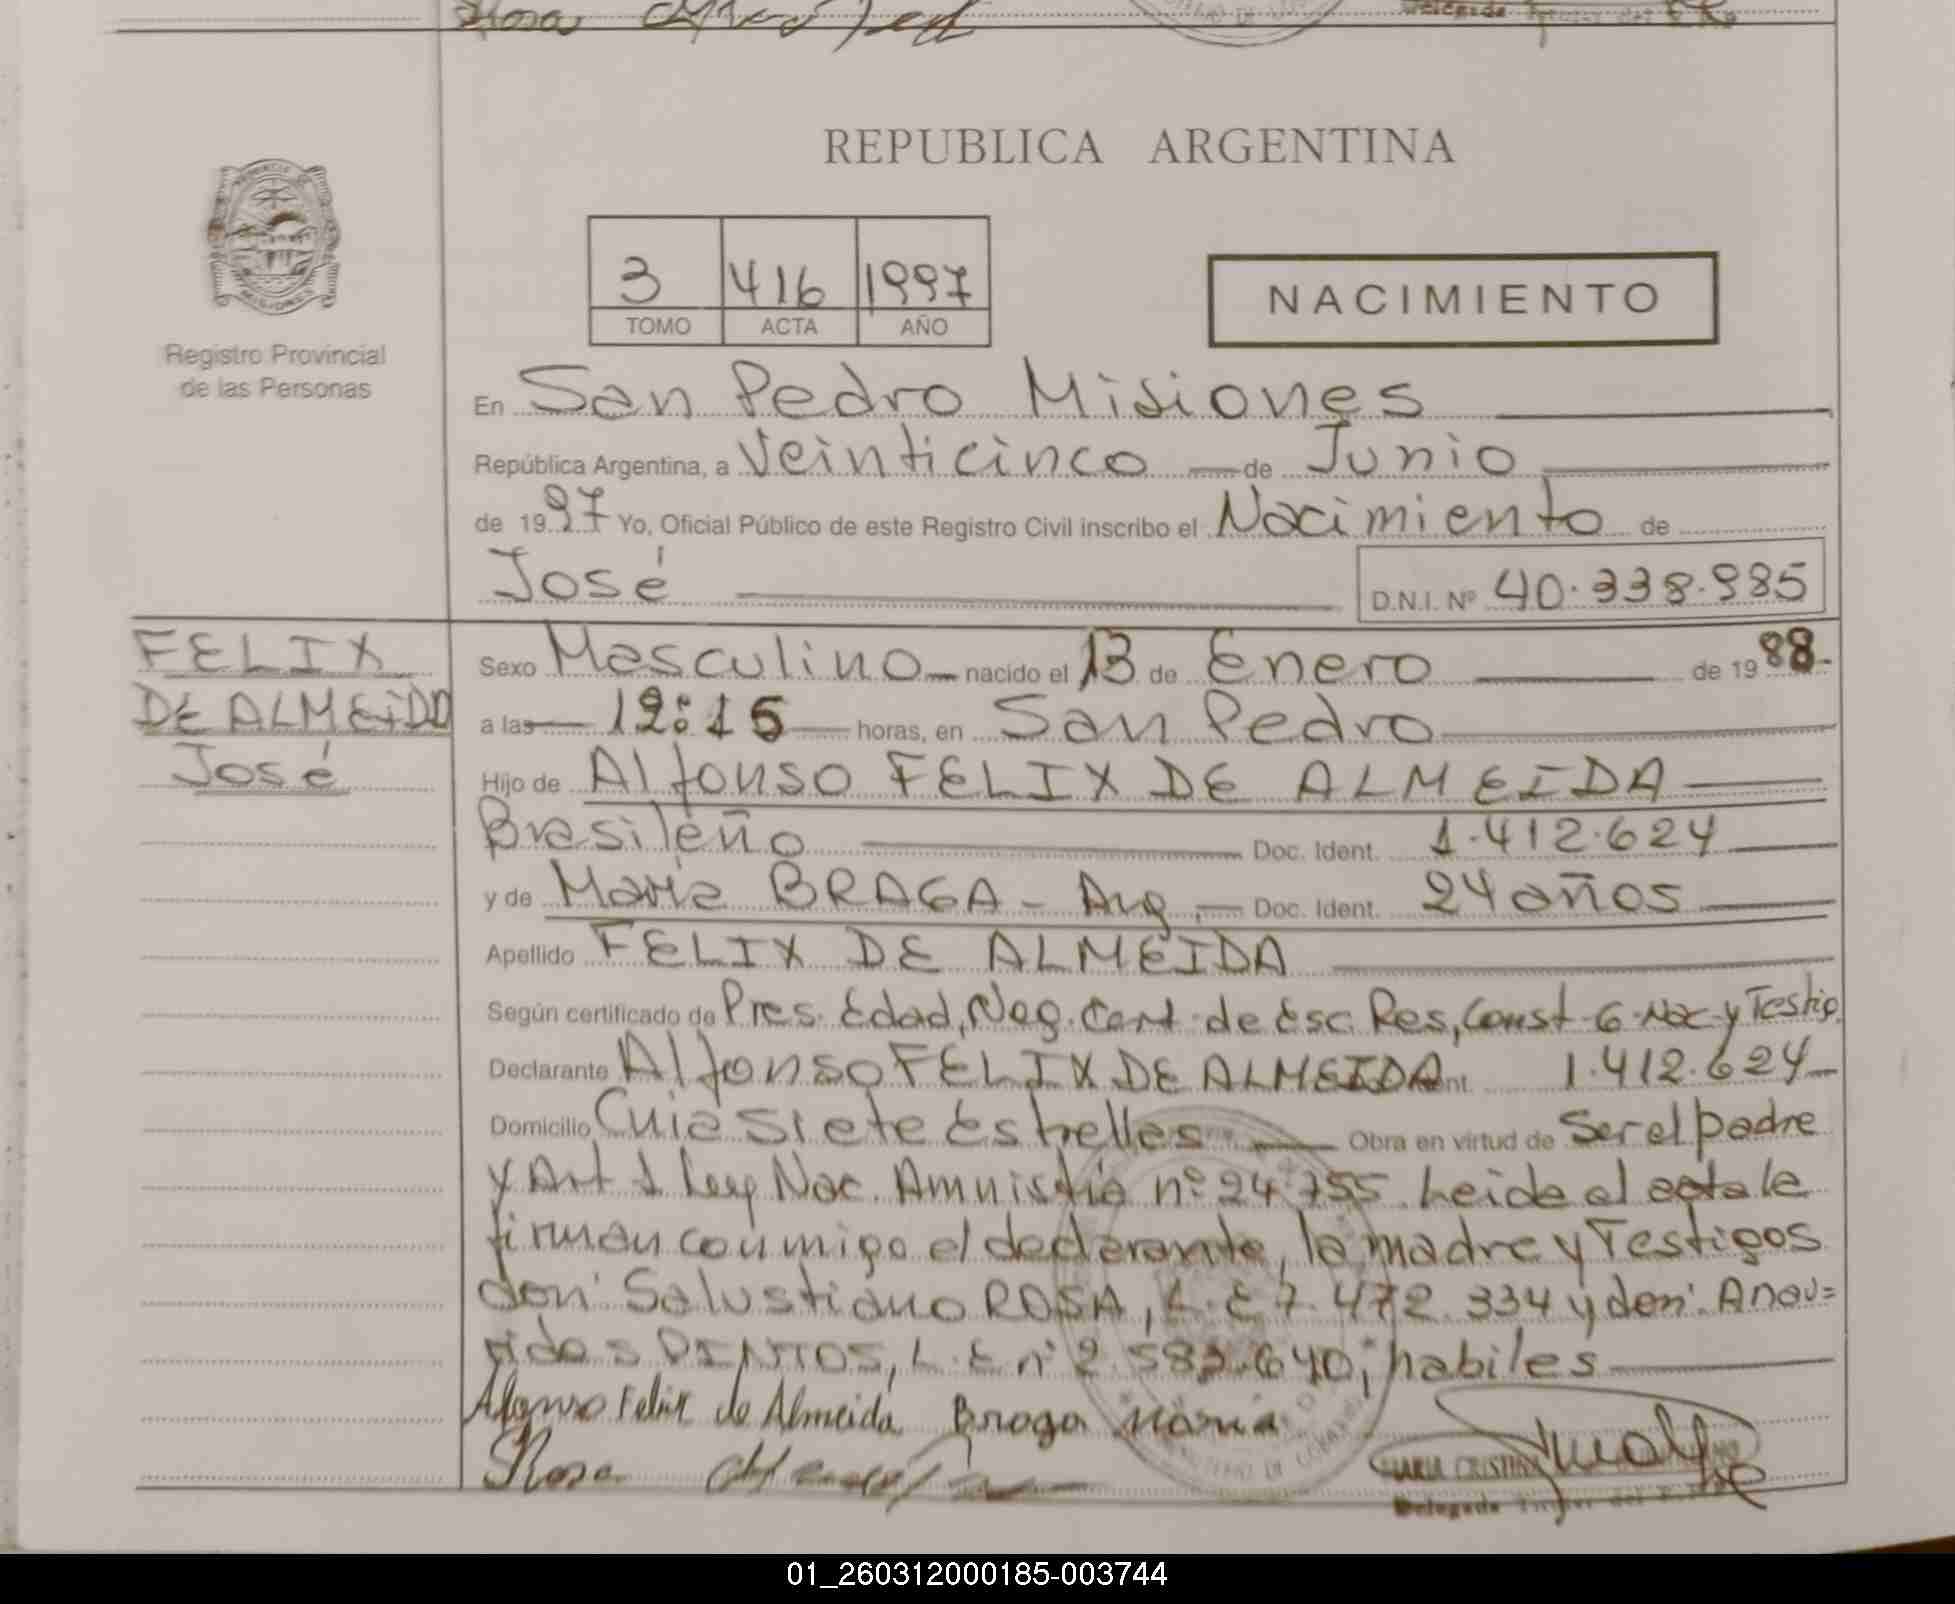 REPUBLICA ARGENTINA
3 416 1997
TOMO ACTA AÑO
NACIMIENTO
Registro Provincial
de las Personas
En San Pedro Misiones
República Argentina, a Veinticinco de Junio
de 1997 Yo, Oficial Público de este Registro Civil inscribo el Nacimiento de
José D.N.I. Nº 40.338.985
FELIX
DE ALMEIDA
José
Sexo Masculino nacido el 13 de Enero de 1988
a las 12:15 horas, en San Pedro
Hijo de Alfonso FELIX DE ALMEIDA
Brasileño Doc. Ident. 1.412.624
y de María BRAGA - Arg. Doc. Ident. 24 años
Apellido FELIX DE ALMEIDA
Según certificado de Pres. Edad, Neg. Cert. de Esc. Res, Const. G. Nac y Testig.
Declarante Alfonso FELIX DE ALMEIDA 1.412.624
Domicilio Cuia Siete Estrellas Obra en virtud de Ser el padre
y Art 1 Ley Nac. Amnistia nº 24.755. Leida el acta le
firman conmigo el declarante, la madre y Testigos
don Salustiano ROSA, L.E 7.472.334 y don
L.E nº habiles
Afonso Felix de Almeida Braga Maria
Rosa
MARIA CRISTINA
01_260312000185-003744